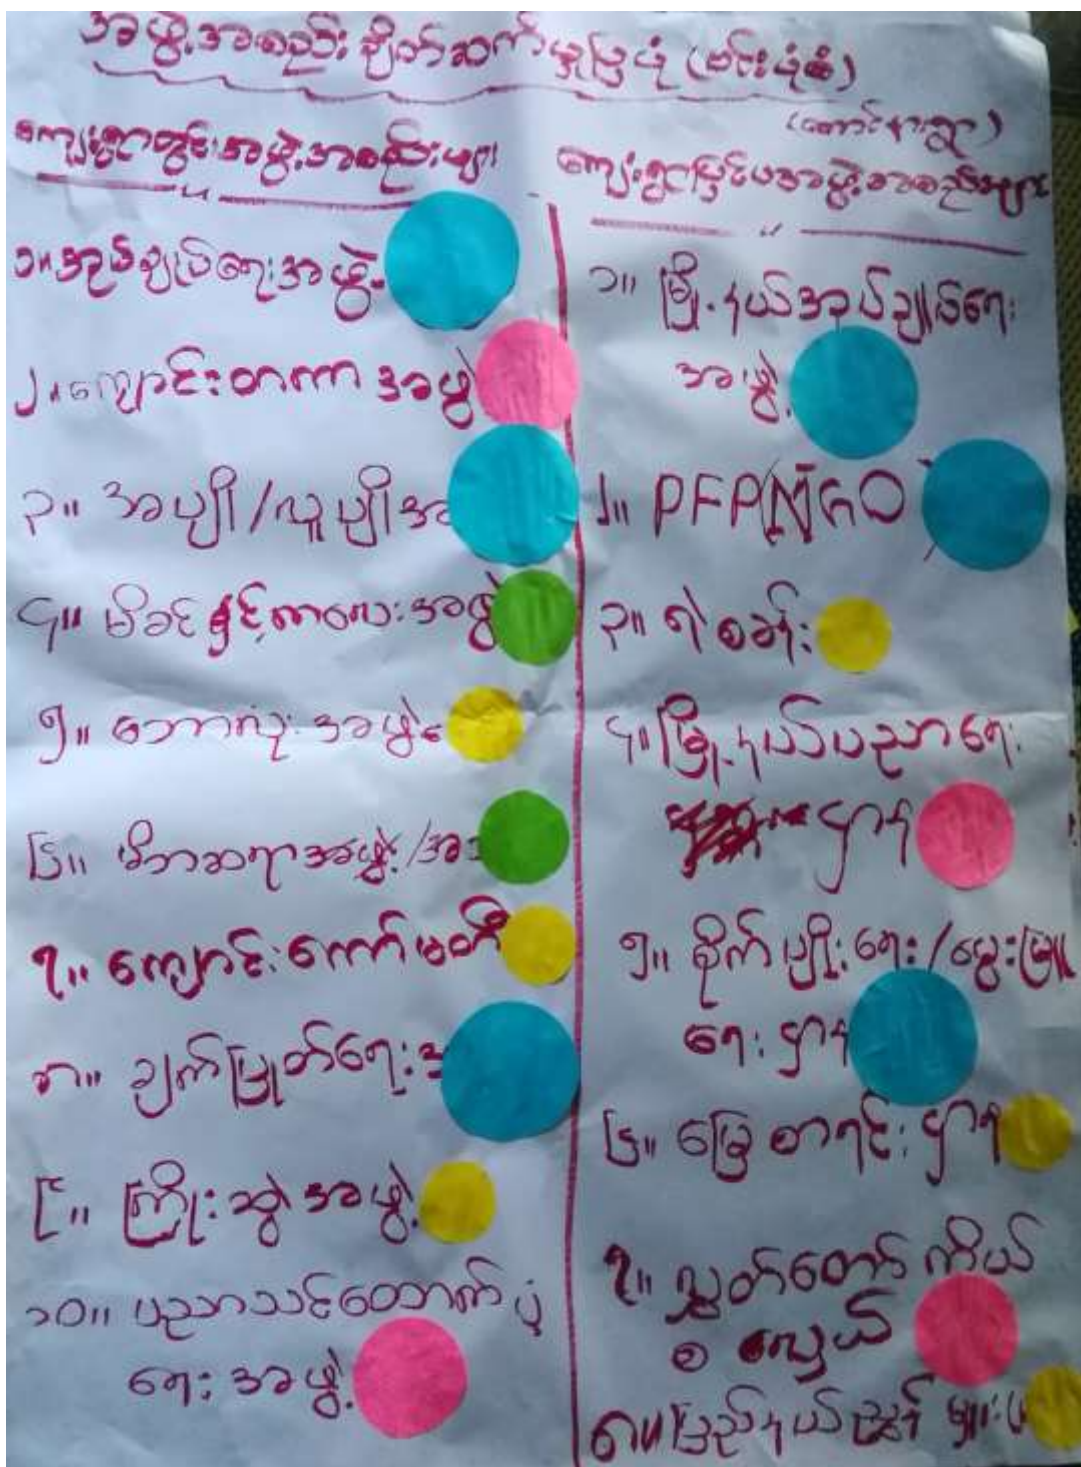 အဖွဲ့အစည်း ချိတ်ဆက်မှုပြပုံ (ဗင်းပုံစံ)
(တောင်နားရွာ)
ကျေးရွာတွင်းအဖွဲ့အစည်းများ
၁။ အုပ်ချုပ်ရေးအဖွဲ့
၂။ ကျောင်းတကာ အဖွဲ့
၃။ အပျို/လူပျိုအ
၄။ မိခင်နှင့်ကလေးအဖွဲ့
၅။ ဘောလုံးအဖွဲ့
၆။ မိဘဆရာအဖွဲ့/အ
၇။ ကျောင်းကော်မတီ
၈။ ချက်ပြုတ်ရေးအ
၉။ ကြိုးဆွဲအဖွဲ့
၁၀။ ပညာသင်ထောက်ပံ့
ရေးအဖွဲ့
ကျေးရွာပြင်ပအဖွဲ့အစည်းများ
၁။ မြို့နယ်အုပ်ချုပ်ရေး
အဖွဲ့
၂။ PFP NGO
၃။ ရဲစခန်း
၄။ မြို့နယ်ပညာရေး
ဌာန
၅။ စိုက်ပျိုးရေး/မွေးမြူ
ရေးဌာန
၆။ မြေစာရင်းဌာန
၇။ လွှတ်တော်ကိုယ်
စလှယ်
၈။ ပြည်နယ်ညွှန်မှူး